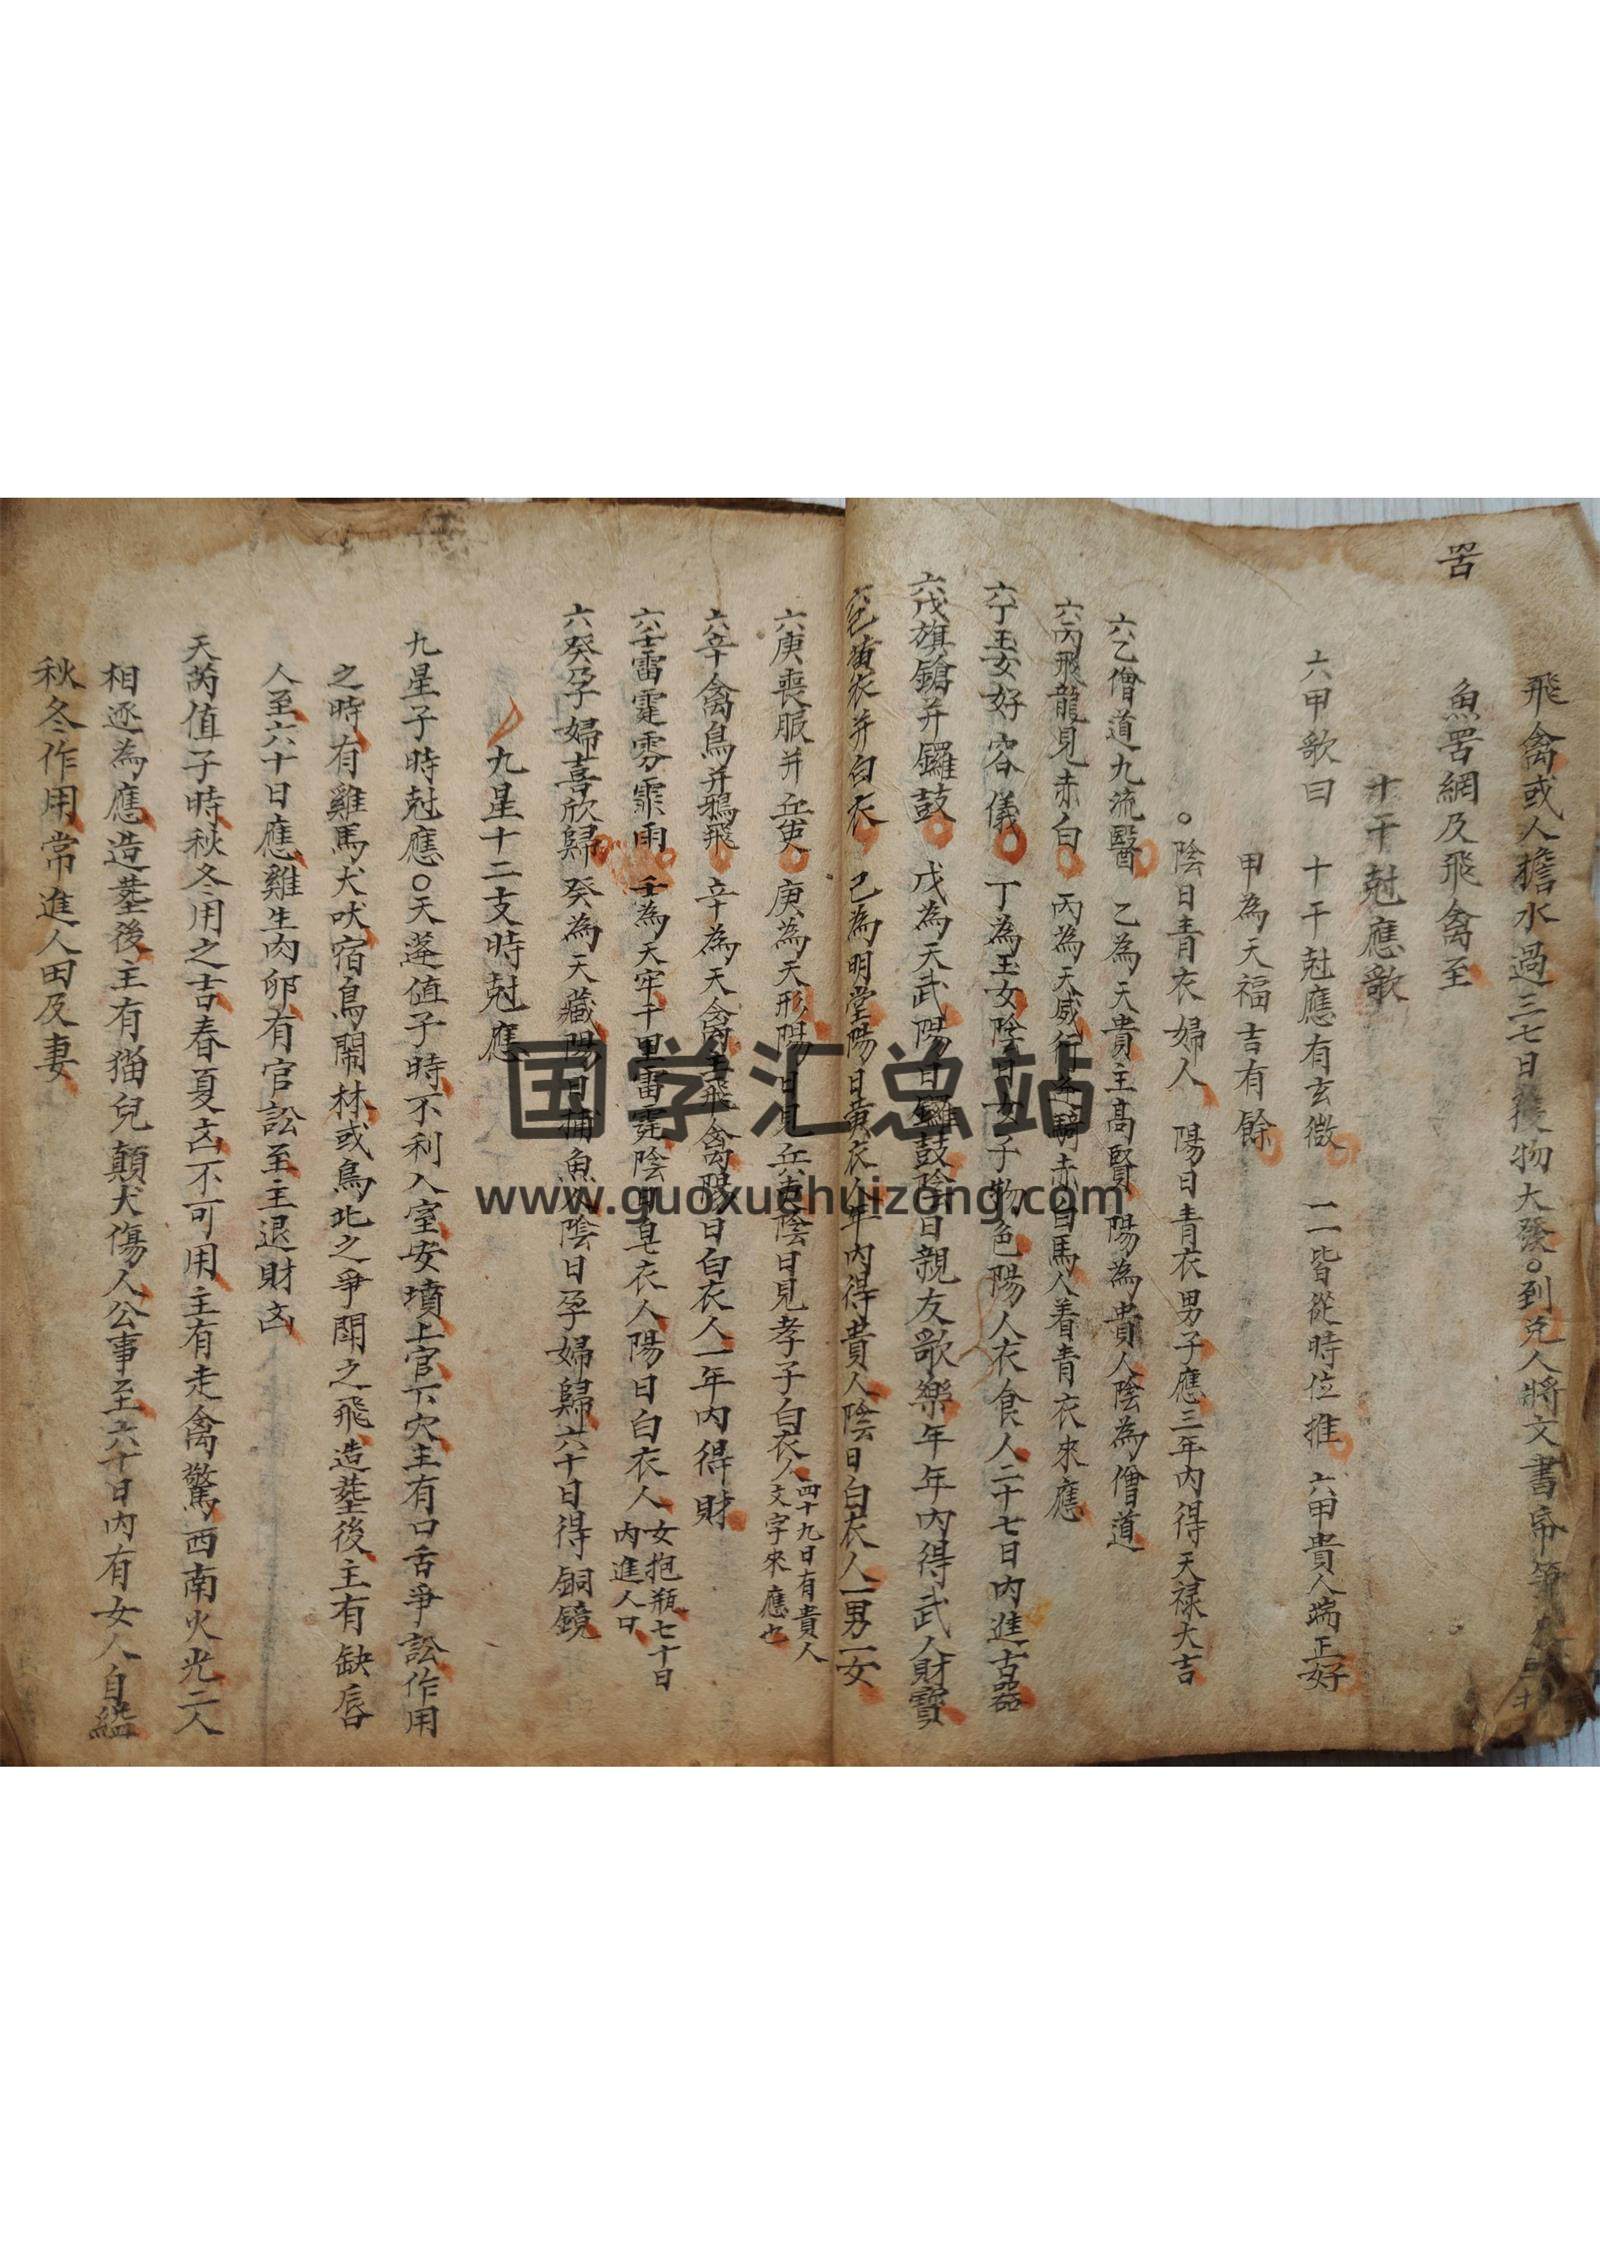 罟
飛禽或人擔水過三七日獲物大發○到兌人將文書帋筆
魚罟網及飛禽至
十干尅應歌
六甲歌曰　十干尅應有玄微　一一皆從時位推　六甲貴人端正好
甲為天福吉有餘
○陰日青衣婦人　陽日青衣男子應三年內得天禄大吉
六乙僧道九流醫　乙為天貴主高賢陽為貴人陰為僧道
六丙飛龍見赤白　丙為天威行逢騎赤白馬人着青衣來應
六丁玉女好容儀　丁為玉女陰日女子物色陽人衣食人二十七日內進古器
六戊旗鎗并鑼鼓　戊為天武陽日鑼鼓陰日親友歌樂年年內得武人財寶
六己黃衣并白衣　己為明堂陽日黃衣人年內得貴人陰日白衣人一男一女
六庚喪服并兵吏　庚為天形陽日見兵吏陰日見孝子白衣人四十九日有貴人文字來應也
六辛禽鳥并鴉飛　辛為天禽主飛禽陽日白衣人一年內得財
六壬雷霆雰霏雨　壬為天牢千里雷霆陰日皂衣人陽日白衣人女抱瓶七十日內進人口
六癸孕婦喜欣歸　癸為天藏陽日捕魚人陰日孕婦歸六十日得銅鏡
九星十二支時尅應
九星子時尅應○天蓬值子時不利入室安墳上官下穴主有口舌爭訟作用
之時有雞馬犬吠宿鳥鬧林或鳥北之爭閗之飛造𦵏後主有缺唇
人至六十日應雞生肉卵有官訟至主退財凶
天芮值子時秋冬用之吉春夏凶不可用主有走禽驚西南火光二人
相逐為應造𦵏後主有猫兒顛犬傷人公事至六十日內有女人自縊
秋冬作用常進人田及妻
国学汇总站
www.guoxuehuizong.com